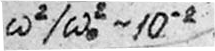 ω²/ω₀² ~ 10⁻²